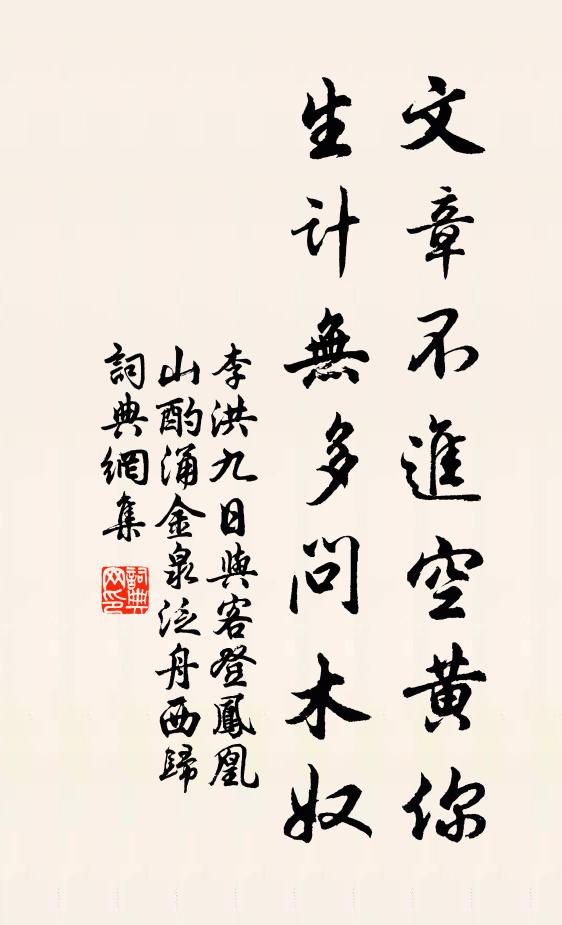 文章不進空黃你
生計無多問木奴
李洪九日與客登鳳凰
山酌涌金泉泛舟西歸
詞典網集
詞典網印